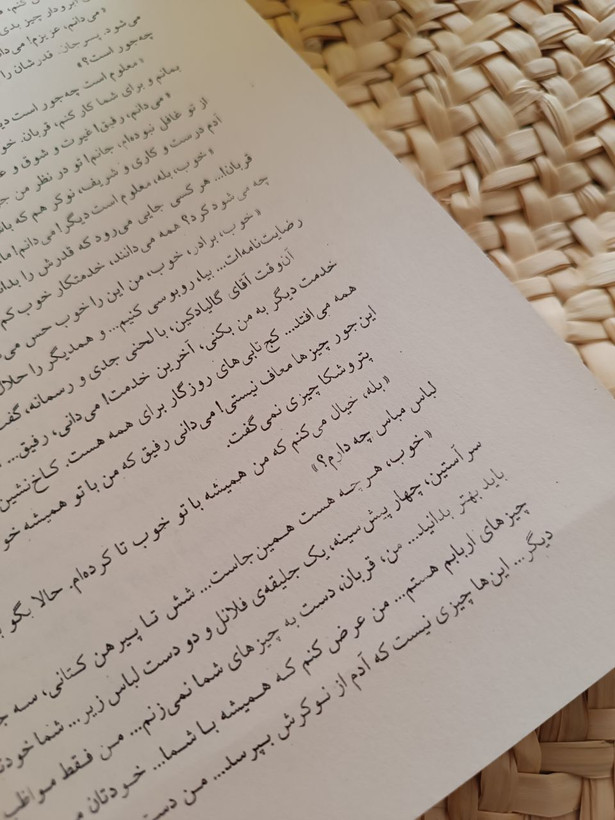 می‌دانم، عزیزم! می‌دا
می‌شود. پسرجان. قدرشان را
چه‌جور است؟»
«معلوم است چه‌جور است دی
بمانم و برای شما کار کنم، قربان. خو
«می‌دانم، رفیق! غیرت و شوق و
از تو غافل نبوده‌ام. جانم! تو در نظر من
آدم درست و کاری و شریف، نوکر هم که باش
«خوب، بله، معلوم است دیگر! می‌دانم! اما
قربان!... هر کسی جایی می‌رود که قدرش را بدان
چه می‌شود کرد؟ همه می‌دانند، خدمتکار خوب کم
«خوب، برادر، خوب، من این را خوب حس می‌
رضایت‌نامه‌ات... بیا، روبوسی کنیم... و همدیگر را حلال
آن‌وقت آقای گالیادکین، با لحنی جدی و رسمانه، گفت
خدمت دیگر به من بکنی، آخرین خدمت! می‌دانی، رفیق...
همه می‌افتد... کج‌تابی‌های روزگار برای همه هست. کاخ‌نشین
این جور چیزها معاف نیستی! می‌دانی رفیق که من با تو همیشه خو
پتروشکا چیزی نمی‌گفت.
«بله، خیال می‌کنم که من همیشه با تو خوب تا کرده‌ام. حالا بگو
لباس مباس چه دارم؟»
«خوب، هر چه هست همین‌جاست... شش تا پیرهن کتانی، سه
سرآستین، چهار پیش‌سینه، یک جلیقه‌ی فلانل و دو دست لباس زیر... شما خودتا
باید بهتر بدانید... من، قربان، دست به چیزهای شما نمی‌زنم... من فقط مواظب
چیزهای اربابم هستم... من عرض کنم که همیشه با شما... خودتان
دیگر... این‌ها چیزی نیست که آدم از نوکرش بپرسد... من دست